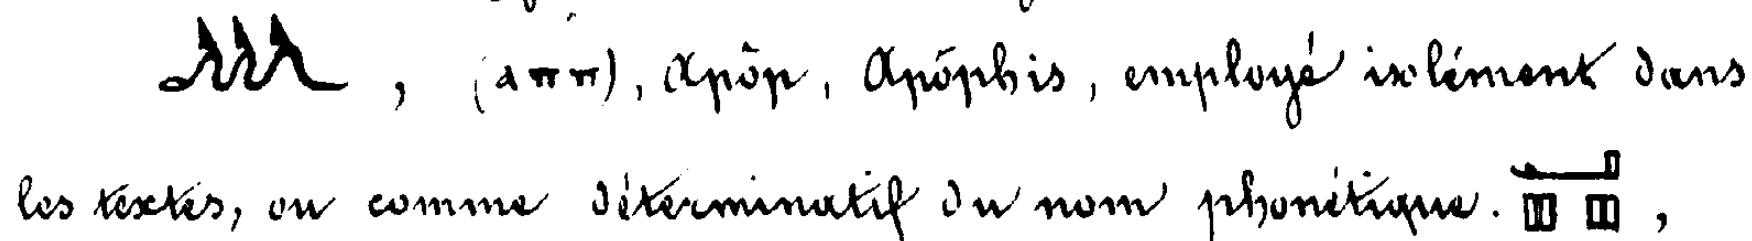 , (aππ), Apôp, Apôphis, employé isolément dans
les textes, ou comme déterminatif du nom phonétique. ,